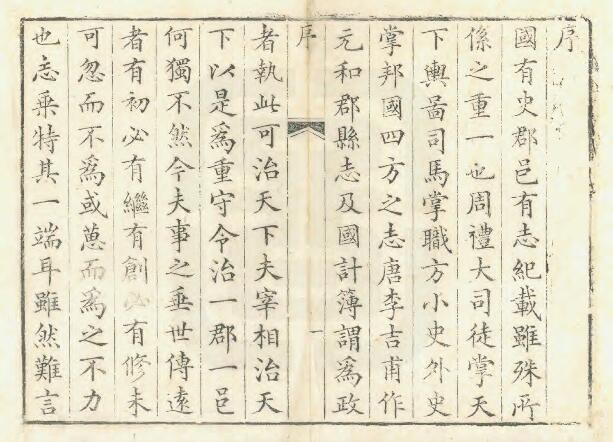 序
國有史郡邑有志紀載雖殊所
係之重一也周禮大司徒掌天
下輿啚司馬掌職方小史外史
掌邦國四方之志唐李吉甫作
元和郡縣志及國計簿謂爲政
序
一
者執此可治天下夫宰相治天
下以是爲重守令治一郡一邑
何獨不然今夫事之垂世傳遠
者有初必有繼有創必有修未
可忽而不爲或葸而爲之不力
也志乗特其一端耳雖然難言